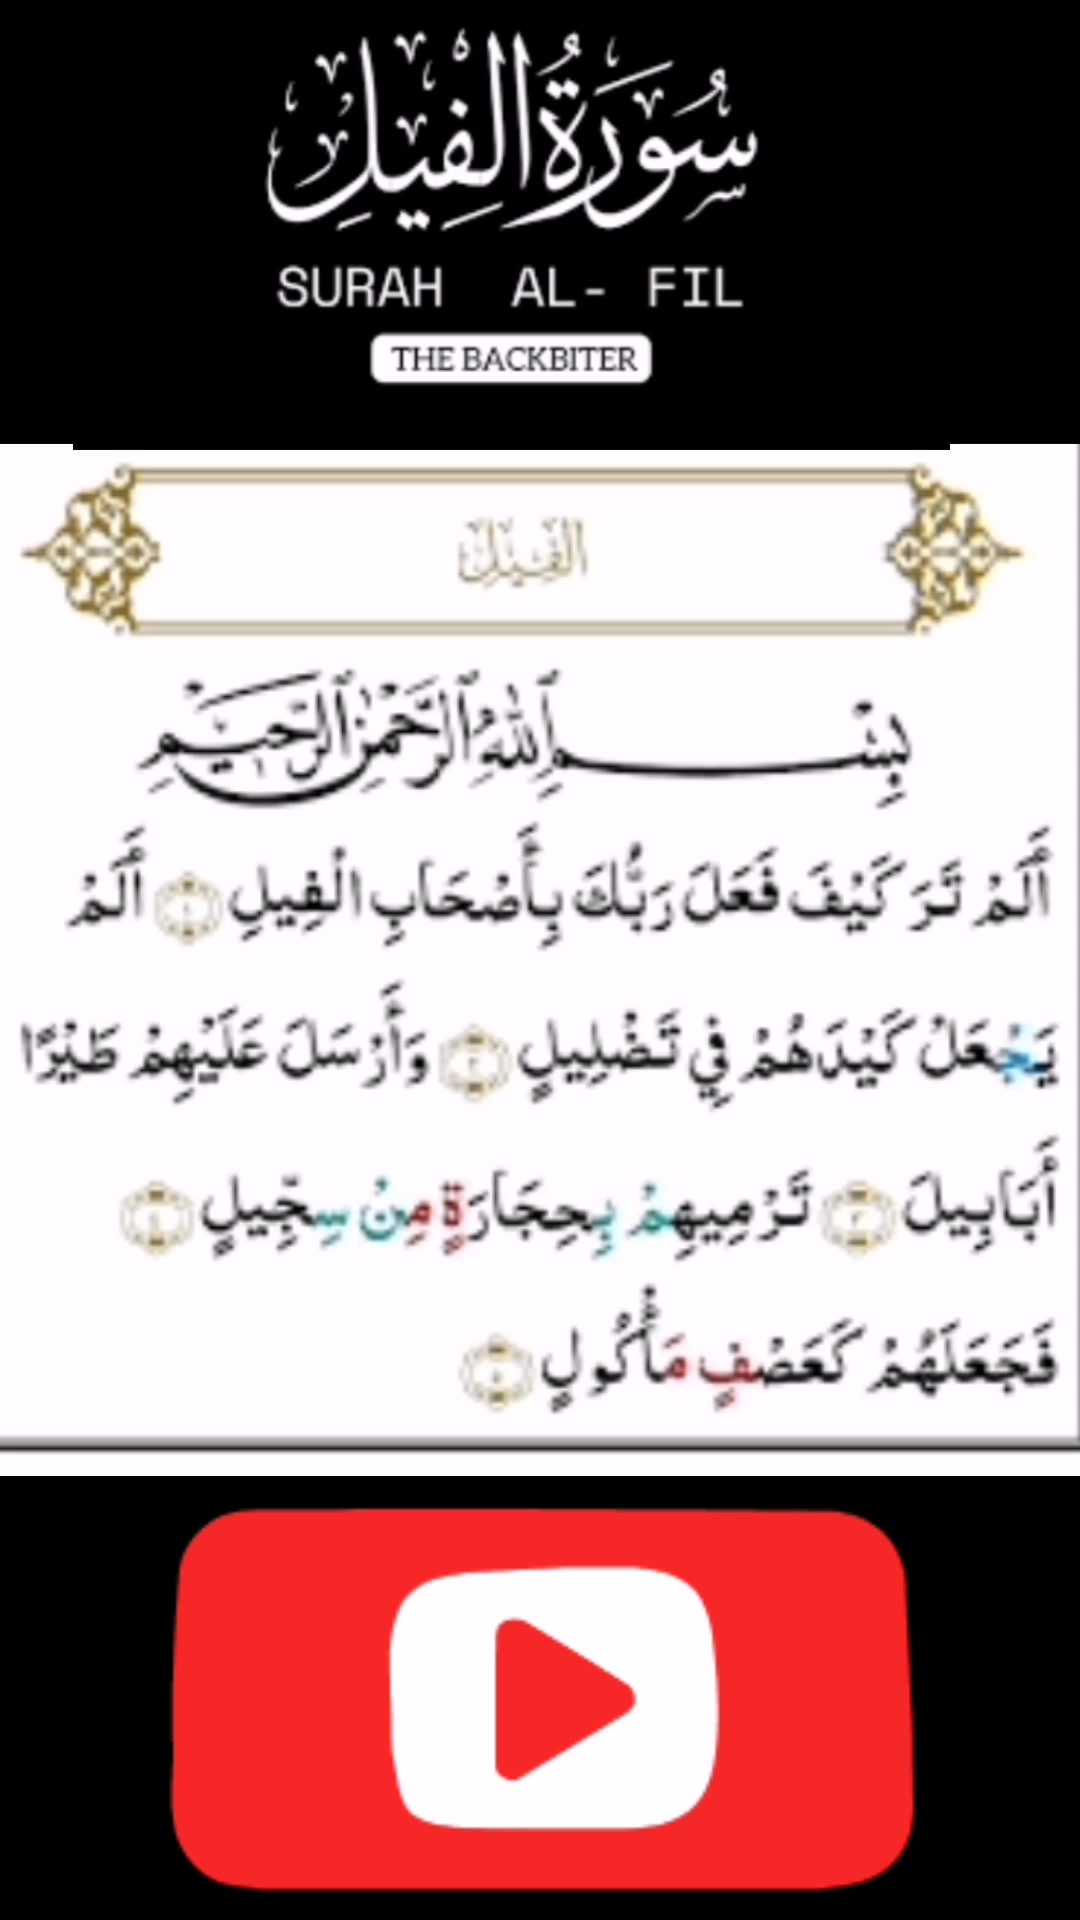 سُورَةُ الْفِيلِ
SURAH AL- FIL
THE BACKBITER
الفيل
بِسْمِ ٱللَّهِ ٱلرَّحْمَٰنِ ٱلرَّحِيمِ
أَلَمْ تَرَ كَيْفَ فَعَلَ رَبُّكَ بِأَصْحَابِ الْفِيلِ ١ أَلَمْ
يَجْعَلْ كَيْدَهُمْ فِي تَضْلِيلٍ ٢ وَأَرْسَلَ عَلَيْهِمْ طَيْرًا
أَبَابِيلَ ٣ تَرْمِيهِمْ بِحِجَارَةٍ مِنْ سِجِّيلٍ ٤
فَجَعَلَهُمْ كَعَصْفٍ مَأْكُولٍ ٥